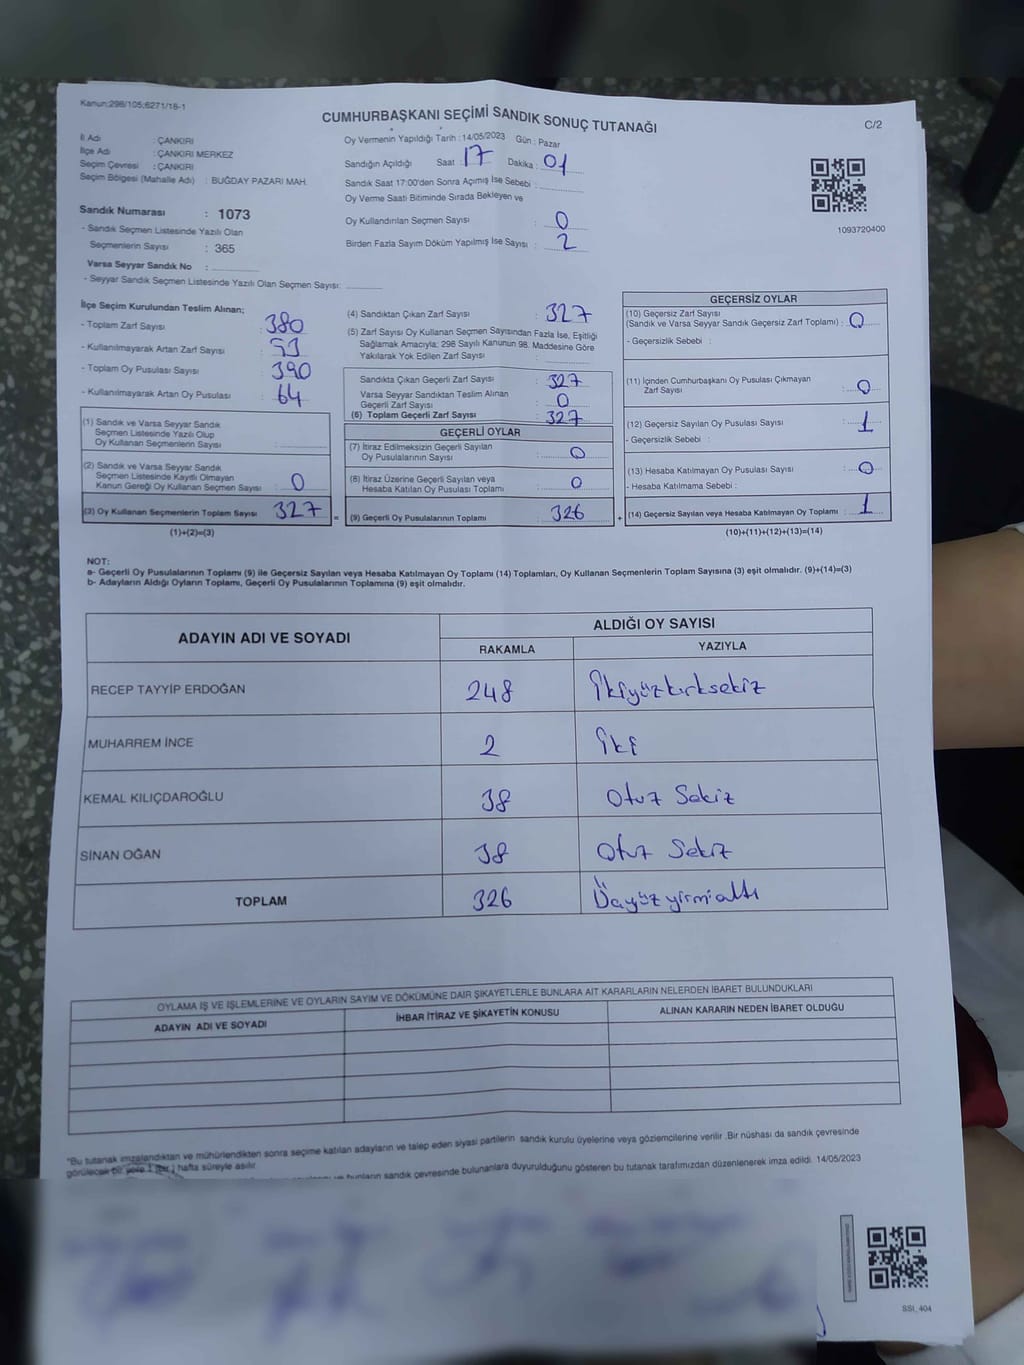 Kanun:298/105;6271/18-1
CUMHURBAŞKANI SEÇİMİ SANDIK SONUÇ TUTANAĞI
C/2
İl Adı : ÇANKIRI
İlçe Adı : ÇANKIRI MERKEZ
Seçim Çevresi : ÇANKIRI
Seçim Bölgesi (Mahalle Adı) : BUĞDAY PAZARI MAH.
Sandık Numarası : 1073
- Sandık Seçmen Listesinde Yazılı Olan
Seçmenlerin Sayısı : 365
Varsa Seyyar Sandık No :
- Seyyar Sandık Seçmen Listesinde Yazılı Olan Seçmen Sayısı:
Oy Vermenin Yapıldığı Tarih : 14/05/2023 Gün : Pazar
Sandığın Açıldığı Saat : 17 Dakika : 01
Sandık Saat 17:00'den Sonra Açımış İse Sebebi :
Oy Verme Saati Bitiminde Sırada Bekleyen ve
Oy Kullandırılan Seçmen Sayısı : 0
Birden Fazla Sayım Döküm Yapılmış İse Sayısı : 2
1093720400
İlçe Seçim Kurulundan Teslim Alınan;
- Toplam Zarf Sayısı : 380
- Kullanılmayarak Artan Zarf Sayısı : 53
- Toplam Oy Pusulası Sayısı : 390
- Kullanılmayarak Artan Oy Pusulası : 64
(1) Sandık ve Varsa Seyyar Sandık
Seçmen Listesinde Yazılı Olup
Oy Kullanan Seçmenlerin Sayısı :
(2) Sandık ve Varsa Seyyar Sandık
Seçmen Listesinde Kayıtlı Olmayan
Kanun Gereği Oy Kullanan Seçmen Sayısı : 0
(3) Oy Kullanan Seçmenlerin Toplam Sayısı : 327
(1)+(2)=(3)
(4) Sandıktan Çıkan Zarf Sayısı : 327
(5) Zarf Sayısı Oy Kullanan Seçmen Sayısından Fazla İse, Eşitliği
Sağlamak Amacıyla; 298 Sayılı Kanunun 98. Maddesine Göre
Yakılarak Yok Edilen Zarf Sayısı :
Sandıkta Çıkan Geçerli Zarf Sayısı : 327
Varsa Seyyar Sandıktan Teslim Alınan
Geçerli Zarf Sayısı : 0
(6) Toplam Geçerli Zarf Sayısı : 327
GEÇERLİ OYLAR
(7) İtiraz Edilmeksizin Geçerli Sayılan
Oy Pusulalarının Sayısı : 0
(8) İtiraz Üzerine Geçerli Sayılan veya
Hesaba Katılan Oy Pusulası Toplamı : 0
=
(9) Geçerli Oy Pusulalarının Toplamı : 326
+
GEÇERSİZ OYLAR
(10) Geçersiz Zarf Sayısı
(Sandık ve Varsa Seyyar Sandık Geçersiz Zarf Toplamı) : 0
- Geçersizlik Sebebi :
(11) İçinden Cumhurbaşkanı Oy Pusulası Çıkmayan
Zarf Sayısı : 0
(12) Geçersiz Sayılan Oy Pusulası Sayısı : 1
- Geçersizlik Sebebi :
(13) Hesaba Katılmayan Oy Pusulası Sayısı : 0
- Hesaba Katılmama Sebebi :
(14) Geçersiz Sayılan veya Hesaba Katılmayan Oy Toplamı : 1
(10)+(11)+(12)+(13)=(14)
NOT:
a- Geçerli Oy Pusulalarının Toplamı (9) ile Geçersiz Sayılan veya Hesaba Katılmayan Oy Toplamı (14) Toplamları, Oy Kullanan Seçmenlerin Toplam Sayısına (3) eşit olmalıdır. (9)+(14)=(3)
b- Adayların Aldığı Oyların Toplamı, Geçerli Oy Pusulalarının Toplamına (9) eşit olmalıdır.
ADAYIN ADI VE SOYADI
ALDIĞI OY SAYISI
RAKAMLA YAZIYLA
RECEP TAYYİP ERDOĞAN 248 İkiyüzkırksekiz
MUHARREM İNCE 2 İki
KEMAL KILIÇDAROĞLU 38 Otuz Sekiz
SİNAN OĞAN 38 Otuz Sekiz
TOPLAM 326 Üçyüz yirmialtı
OYLAMA İŞ VE İŞLEMLERİNE VE OYLARIN SAYIM VE DÖKÜMÜNE DAİR ŞİKAYETLERLE BUNLARA AİT KARARLARIN NELERDEN İBARET BULUNDUKLARI
ADAYIN ADI VE SOYADI İHBAR İTİRAZ VE ŞİKAYETİN KONUSU ALINAN KARARIN NEDEN İBARET OLDUĞU
"Bu tutanak imzalandıktan ve mühürlendikten sonra seçime katılan adayların ve talep eden siyasi partilerin sandık kurulu üyelerine veya gözlemcilerine verilir .Bir nüshası da sandık çevresinde
görülecek bir yere 1 (bir) hafta süreyle asılır.
ve bunların sandık çevresinde bulunanlara duyurulduğunu gösteren bu tutanak tarafımızdan düzenlenerek imza edildi. 14/05/2023
SSI_404